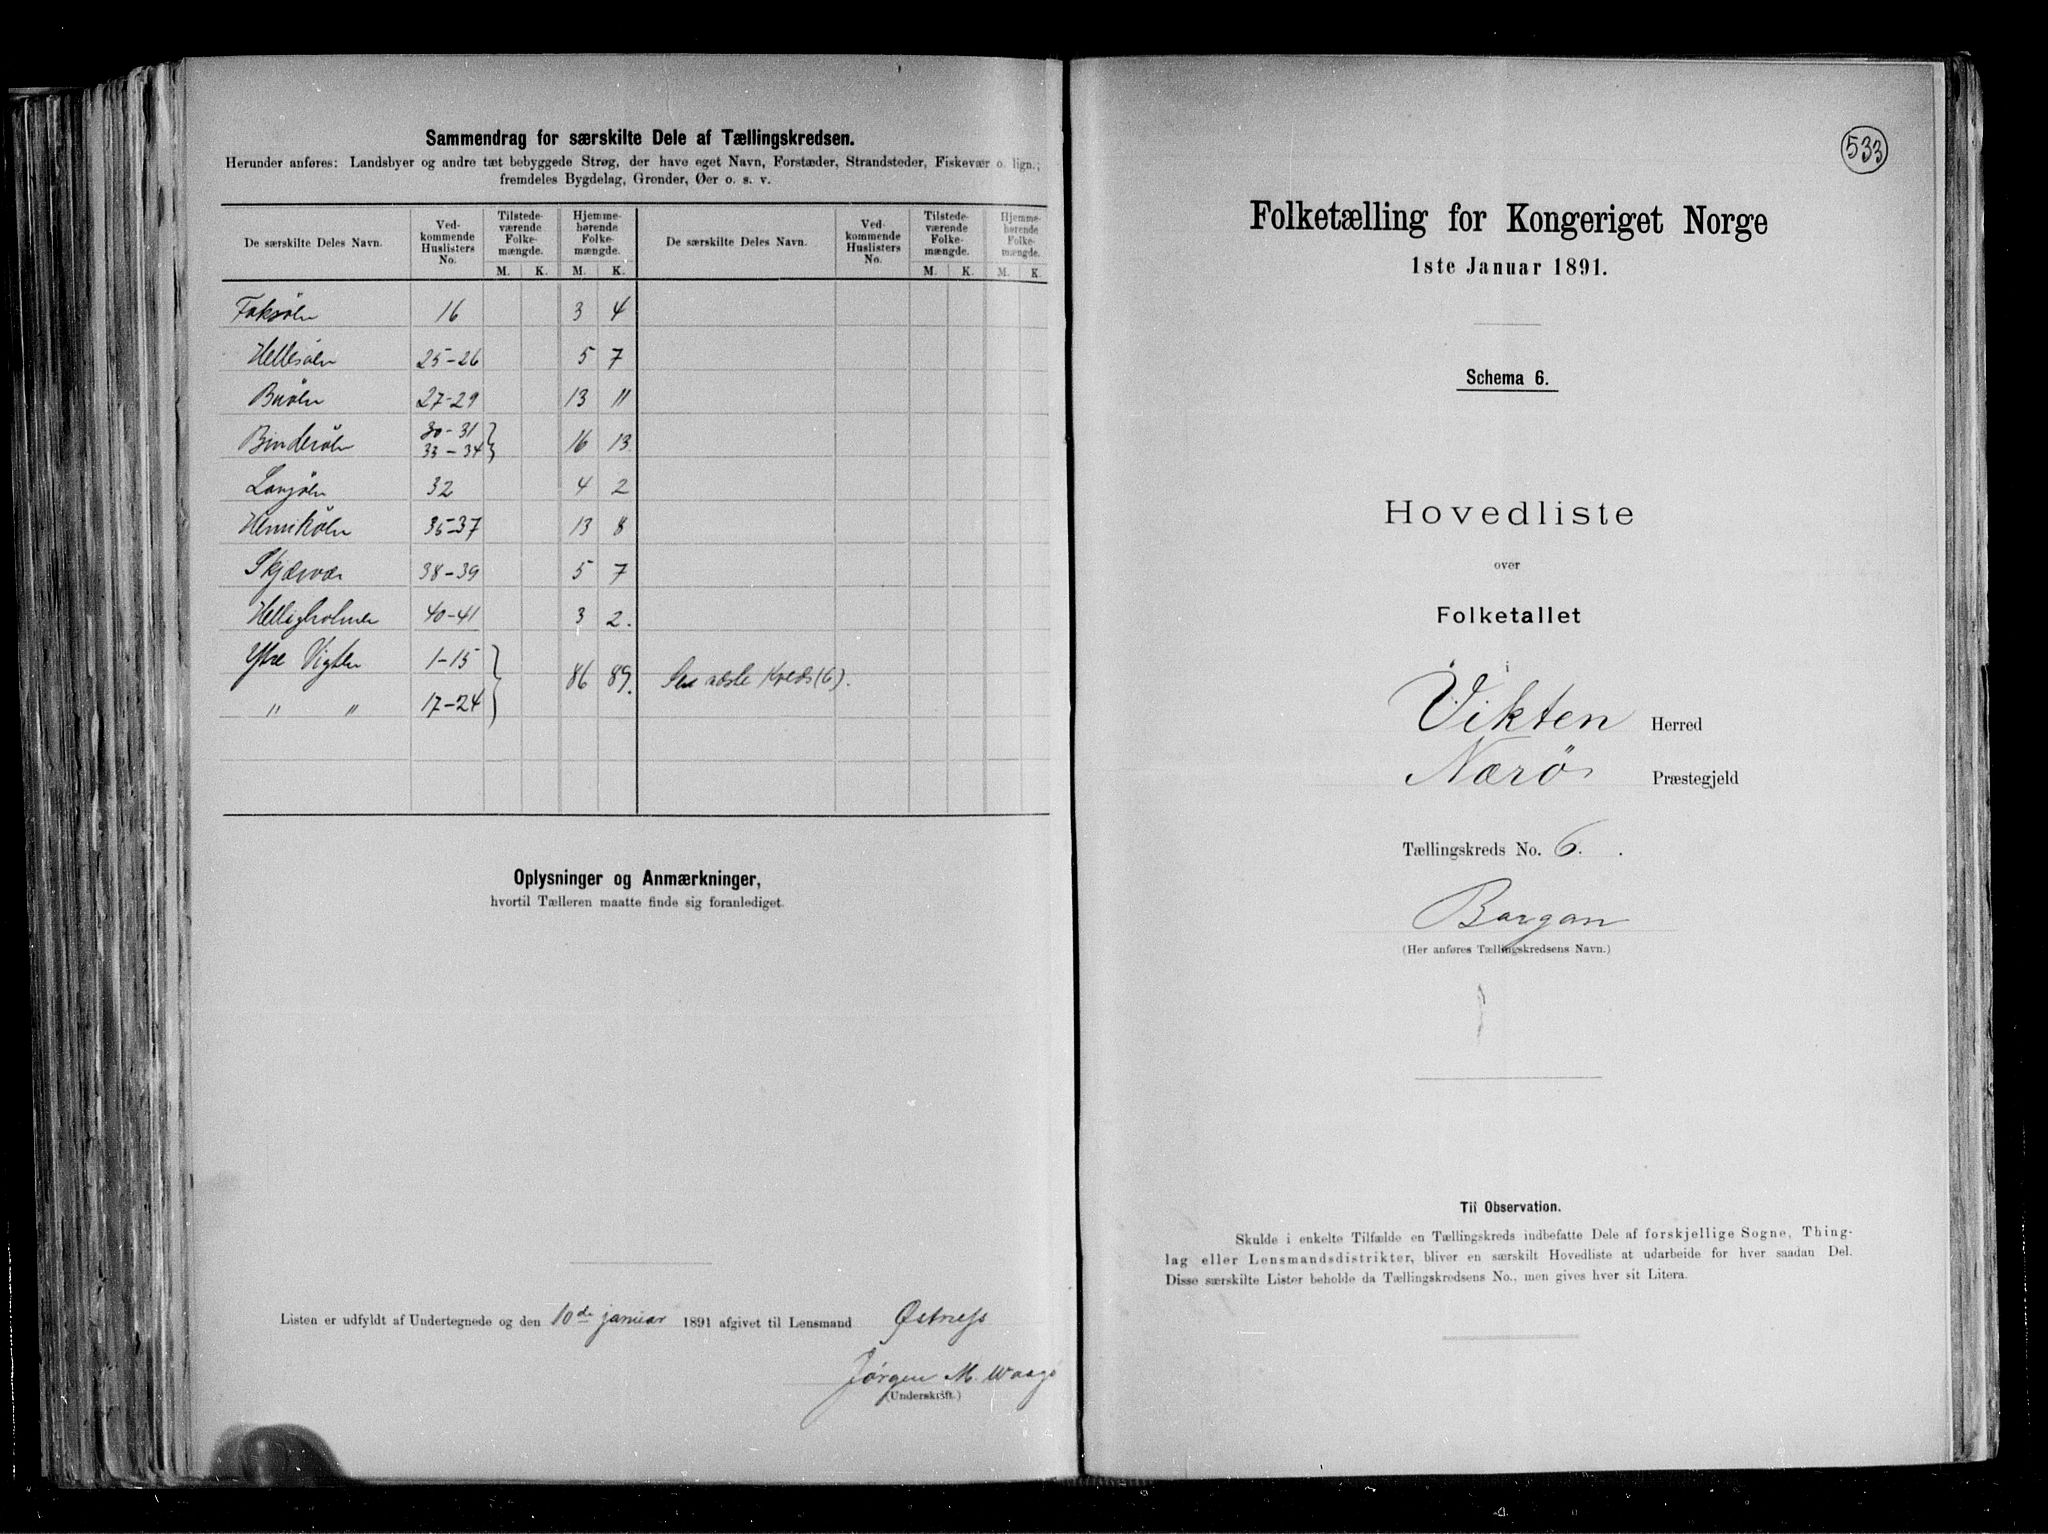 Sammendrag for særskilte Dele af Tællingskredsen.
Herunder anføres: Landsbyer og andre tæt bebyggede Strøg, der have eget Navn, Forstæder, Strandsteder, Fiskevær o. lign.;
fremdeles Bygdelag, Grender, Øer o. s. v.
De særskilte Deles Navn. Vedkommende Huslisters No. Tilstedeværende Folkemængde. M. K. Hjemmehørende Folkemængde. M. K. De særskilte Deles Navn. Vedkommende Huslisters No. Tilstedeværende Folkemængde. M. K. Hjemmehørende Folkemængde. M. K.
16 3 4
Hellesöen 25-26 5 7
Buöen 27-29 13 11
Binderöen 30-31 33-34 } 16 13.
32 4 2
Henriköen 35-37 13 8
Skjærvær 38-39 5 7
Helligholmen 40-41 3 2.
Ytre Vigten 1-15 } 86 89. Se næste Kreds (6).
" " 17-24
Oplysninger og Anmærkninger,
hvortil Tælleren maatte finde sig foranlediget.
Listen er udfyldt af Undertegnede og den 10de januar 1891 afgivet til Lensmand Østness
Jørgen M. Waagø
(Underskrift.)
533
Folketælling for Kongeriget Norge
1ste Januar 1891.
Schema 6.
Hovedliste
over
Folketallet
i
Vikten Herred
Nærö Præstegjeld
Tællingskreds No. 6.
Borgan
(Her anføres Tællingskredsens Navn.)
Til Observation.
Skulde i enkelte Tilfælde en Tællingskreds indbefatte Dele af forskjellige Sogne, Thing-
lag eller Lensmandsdistrikter, bliver en særskilt Hovedliste at udarbeide for hver saadan Del.
Disse særskilte Lister beholde da Tællingskredsens No., men gives hver sit Litera.